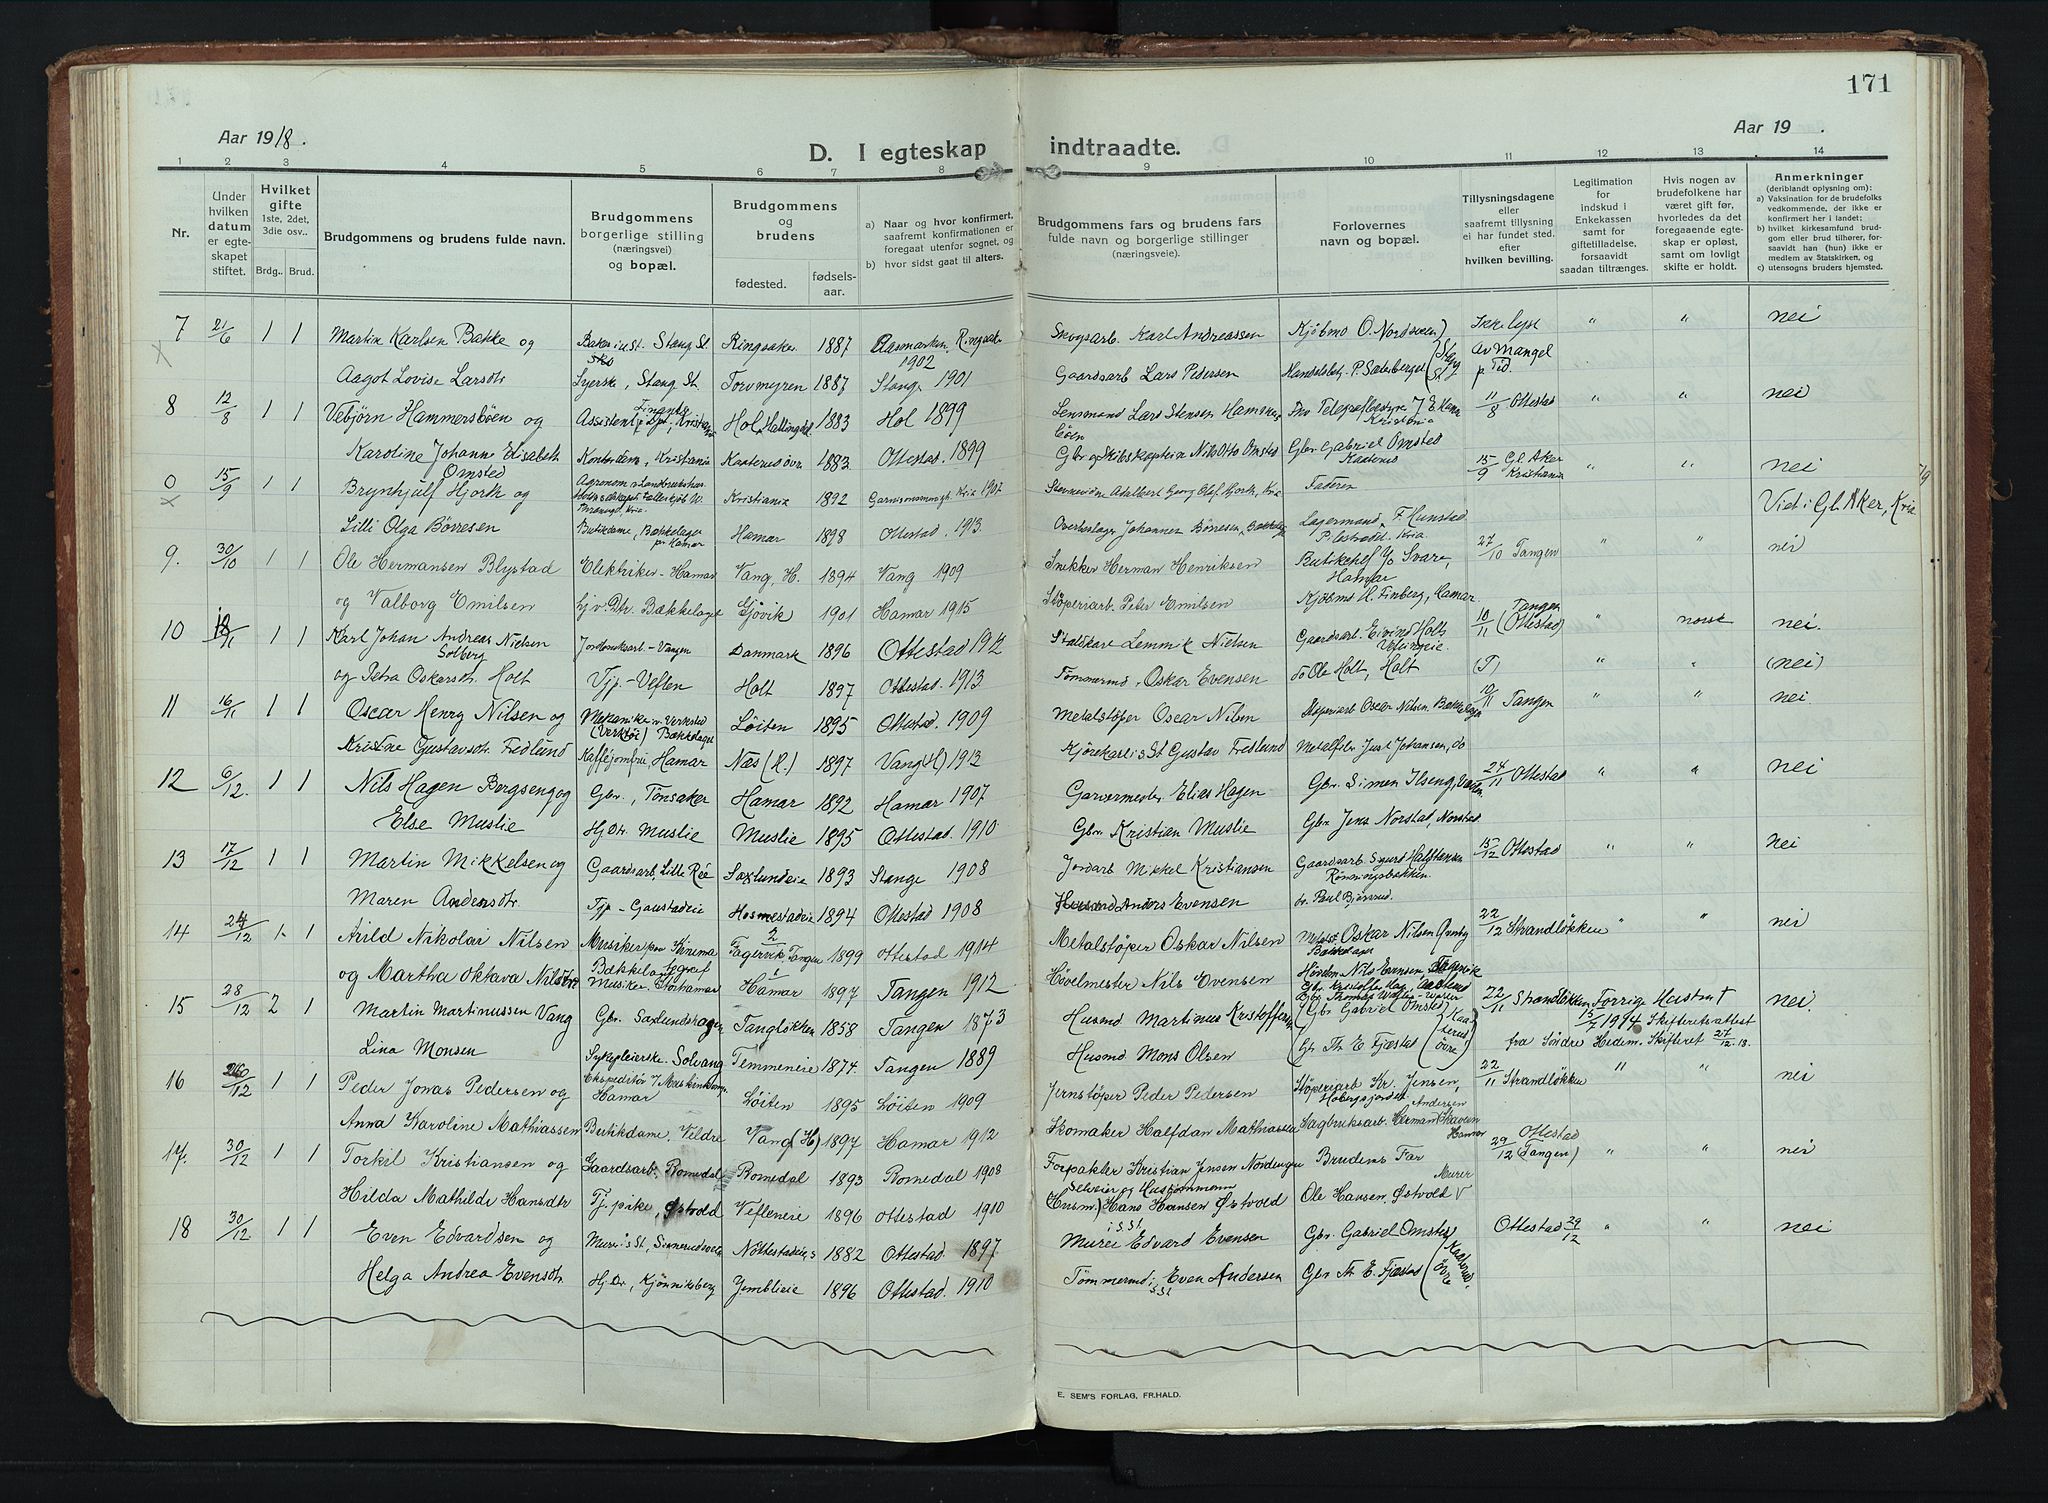 171
Aar 1918.
D. I egteskap indtraadte.
Aar 19 .
1 2 3 4 5 6 7 8 9 10 11 12 13 14
Nr.
Under hvilken datum er egteskapet stiftet.
Hvilket gifte 1ste, 2det, 3die osv..
Brdg.. Brud.
Brudgommens og brudens fulde navn.
Brudgommens borgerlige stilling (næringsvei) og bopæl.
Brudgommens og brudens
fødested. fødselsaar.
a) Naar og hvor konfirmert, saafremt konfirmationen er foregaat utenfor sognet, og
b) hvor sidst gaat til alters.
Brudgommens fars og brudens fars fulde navn og borgerlige stillinger (næringsveie).
Forlovernes navn og bopæl.
Tillysningsdagene eller saafremt tillysning ei har fundet sted, efter hvilken bevilling.
Legitimation for indskud i Enkekassen samt for giftetilladelse, forsaavidt saadan tiltrænges.
Hvis nogen av brudefolkene har været gift før, hvorledes da det foregaaende egteskap er opløst, samt om lovligt skifte er holdt.
Anmerkninger (deriblandt oplysning om):
a) Vaksination for de brudefolks vedkommende, der ikke er konfirmert her i landet;
b) hvilket kirkesamfund brudgom eller brud tilhører, forsaavidt han (hun) ikke er medlem av Statskirken, og
c) utensogns bruders hjemsted.
7 21/6 1 1 Martin Karlsen Bakke og Baker i St. Stang St. Ringsaker 1887 Aasmarken, Ringsaker 1902 Skogsarb. Karl Andreassen Kjøbm. O. Nordseen Ikke lyst " " nei
Aagot Lovise Larsdtr Syerske, Stang St. Torvmyren 1887 Stange 1901 Gaardsarb Lars Pedersen Av Mangel p Tid.
8 12/8 1 1 Vebjörn Hammersböen og Assistent i Finants Dpt, Kristiania Hol, Hallingdal 1883 Hol 1899 Lensmand Lars Stensen Hammersböen 11/8 Ottestad " " nei
Karoline Johanne Elisabeth Omsted Kontordame, Kristiania Kaaterud øvre 1883 Ottestad 1899 Gbr og Skibskaptein Nils Otto Omsted Gbr. Gabriel Omsted
0 15/9 1 1 Brynhjulf Hjorth og Kristiania 1892 1907 Adalbert Georg Olaf Hjorth, Kria Faderen 15/9 Gl. Aker Kristiania " " nei
Viet i Gl. Aker, Kria
Lilli Olga Børresen Butikdame, Bækkelaget pr Hamar Hamar 1898 Ottestad 1913 Johannes Børresen, Bækkelaget Lagermand F. Hunstad
9. 30/10 1 1 Ole Hermansen Blystad Elektriker - Hamar Vang, H. 1894 Vang 1909 Snekker Herman Henriksen Hamar 27/10 Tangen " " nei
og Valborg Emilsen Bækkelaget Gjøvik 1901 Hamar 1915 Støperiarb. Peter Emilsen Kjøbm H. Finberg, Hamar
10 1 1 Karl Johan Andreas Nielsen Solberg Danmark 1896 Ottestad 1912 Nielsen Gaardsarb. Eivind Holt, 10/11 Tangen (Ottestad) " norsk nei.
og Petra Oskarsdtr. Holt Tjp. - Veflen Holt 1897 Ottestad 1913 Tømmermd. Oskar Evensen Ole Holt, Holt (T) " " (nei)
11 16/11 1 1 Oscar Henry Nilsen og Bækkelaget Løiten 1895 Ottestad 1909 Metalstøper Oscar Nilsen Støperiarb Oscar Nilsen Bækkelaget 10/11 Tangen " " nei
Kristine Gustavsdtr Fredlund Kafféjomfru, Hamar Næs (H.) 1897 Vang (H) 1913 Kjørekarl i St Gustav Fredlund Just Johansen, do
12 6/12. 1 1 Nils Hagen Bergseng og Gbr., Tonsaker Hamar 1892 Hamar 1907 Garvermester Elias Hagen Gbr. Simen Ilseng, 24/11 Ottestad " " nei
Else Muslie Hj. Dtr. Muslie Muslie 1895 Ottestad 1910 Gbr. Kristian Muslie Gbr Jens Norstad, Norstad
13 17/12 1 1 Martin Mikkelsen og Gaardsarb, Lille Rée Saxlundeie 1893 Stange 1908 Jordarb Mikkel Kristiansen Gaardsarb. Sigurd Halvstensen Rønningsbakken. 15/12 Ottestad " " nei
Maren Andersdtr. Tjp - Gaustadeie Hosmestadeie 1894 Ottestad 1908 Husmd Anders Evensen Paul Bjørnerud
14 1 1 Arild Nikolai Nilsen Musiker Kinema Bækkelaget Fagervik Tangen 1899 Ottestad 1914 Metalstøper Oskar Nilsen Oskar Nilsen Bækkelaget 22/12 Strandløkken " " nei
og Martha Oktava Nilsdtr Storhamar Hamar 1897 Tangen 1912 Høvelmester Nils Evensen Nils Evensen, Fagervik
15 28/12 2 1 Martin Martinussen Vang Gbr. Saxlundshagen Tangløkken 1858 Tangen 1873 Husmd Martinus Kristoffersen Gbr Gabriel Omsted 22/11 Strandløkken Forrige Hustru † nei.
Lina Monsen Sykepleierske. Solvang Temmeneie 1874 Tangen 1889 Husmd Mons Olsen Gbr Th E. Fjæstad (Kaaterud øvre) Skifteretsattest fra Søndre Hedem. Skifteret 27/12-18.
16 1 1 Peder Jonas Pedersen og Hamar Løiten 1895 Løiten 1909 Jernstøper Peder Pedersen Støperiarb Kr. Jensen, 22/11 Strandløkken " " nei
Anna Karoline Mathiassen Butikdame, Veldre Vang (H) 1897 Hamar 1912 Skomaker Halfdan Mathiassen Sagbruksarb. Herman Andersen
17. 30/12 1 1 Torkil Kristiansen og Gaardsarb. Romedal Romedal 1893 Romedal 1908 Forpakter Kristian Jensen Nordengen Brudens Far 29/12 Ottestad (Tangen) " " nei
Hilda Mathilde Hansdtr Tj. pike, Østvold Vefleneie 1896 Ottestad 1910 Hans Hansen Østvold Ole Hansen, Østvold Murer
18 30/12. 1 1 Even Edvardsen og Murer i St. Nøttestadeie 1882 Ottestad 1897 Murer Edvard Evensen Gbr. Gabriel Omsted Ottestad 29/12 " " nei
Helga Andrea Evensdtr Hj. Dtr., Kjønniksberg Jemblieie 1896 Ottestad. 1910 Tømmermd i St Even Andersen Gbr Th. E. Fjæstad (Kaaterud øvre)
E. SEM'S FORLAG, FR.HALD.